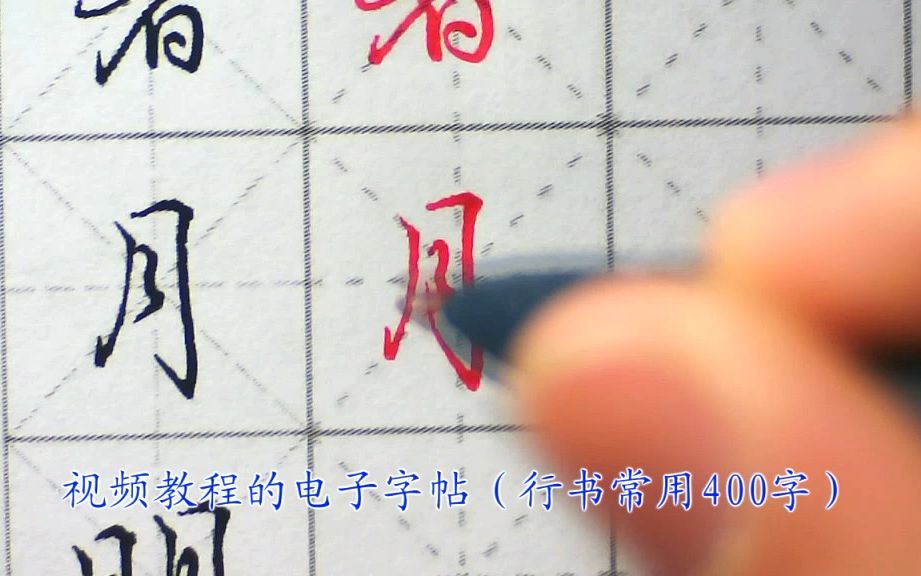 月 月
视频教程的电子字帖（行书常用400字）
明